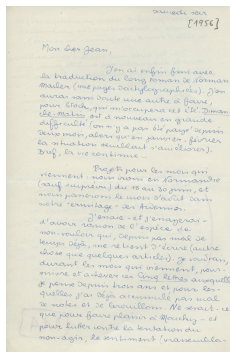 samedi soir
[1956]
Mon cher Jean,
J'en ai enfin fini avec
la traduction du long roman de Norman
Mailer (me page dactylographiée). J'en
aurai sans doute une autre à faire,
pour Bloch, qui m'occupera et
est à nouveau en grande
difficulté (on n'y a pas été payé depuis
deux mois, alors qu'en janvier-février
la situation semblait s'améliorer).
Bref, la vie continue.
Projets pour les mois qui
viennent: nous irons en Normandie
(sauf imprévu) du 18 au 30 juin, et
nous passerons le mois d'août dans
notre ermitage
J'essaie - et j'essaierai -
d'avoir raison de l'espèce de
non-vouloir qui, depuis pas mal de
temps déjà, me retient d'écrire (autre
chose que quelques articles). Je voudrais,
durant les mois qui viennent, pour-
suivre et achever ces cinq lettres auxquelles
je pense depuis trois ans et pour les-
quelles j'ai déjà accumulé pas mal
de notes et de brouillons. Ne serait-ce
que pour faire plaisir à
pour lutter contre la tentation du
le sentiment (vraisembla-